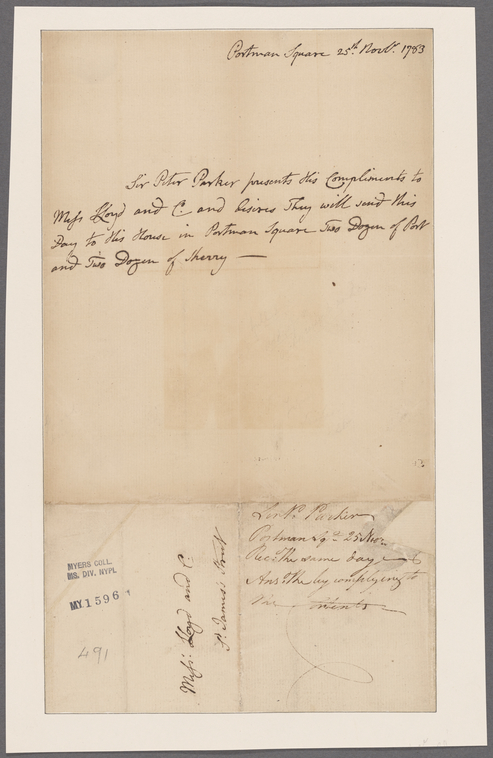 Portman Square 25th Novr. 1783
Sir Peter Parker presents His Compliments to
Messs Lloyd and Co. and desires They will send this
Day to His House in Portman Square Two Dozen of Port
and Two Dozen of Sherry —
Sir Pr. Parker
Portman Sqre 25 Nov
Recd. the same day
Ansd. the by complying to
the Contents
Messs. Lloyd and Co.
St. James's Street
MYERS COLL.
MS. DIV. NYPL
MY 1596
491